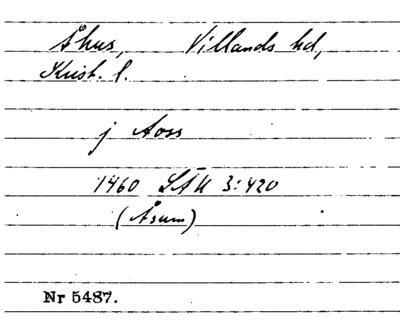 Åhus, Villands hd,
Krist. l.
j Aoss
1460 SAU 3:420
(Åsum)
Nr 5487.